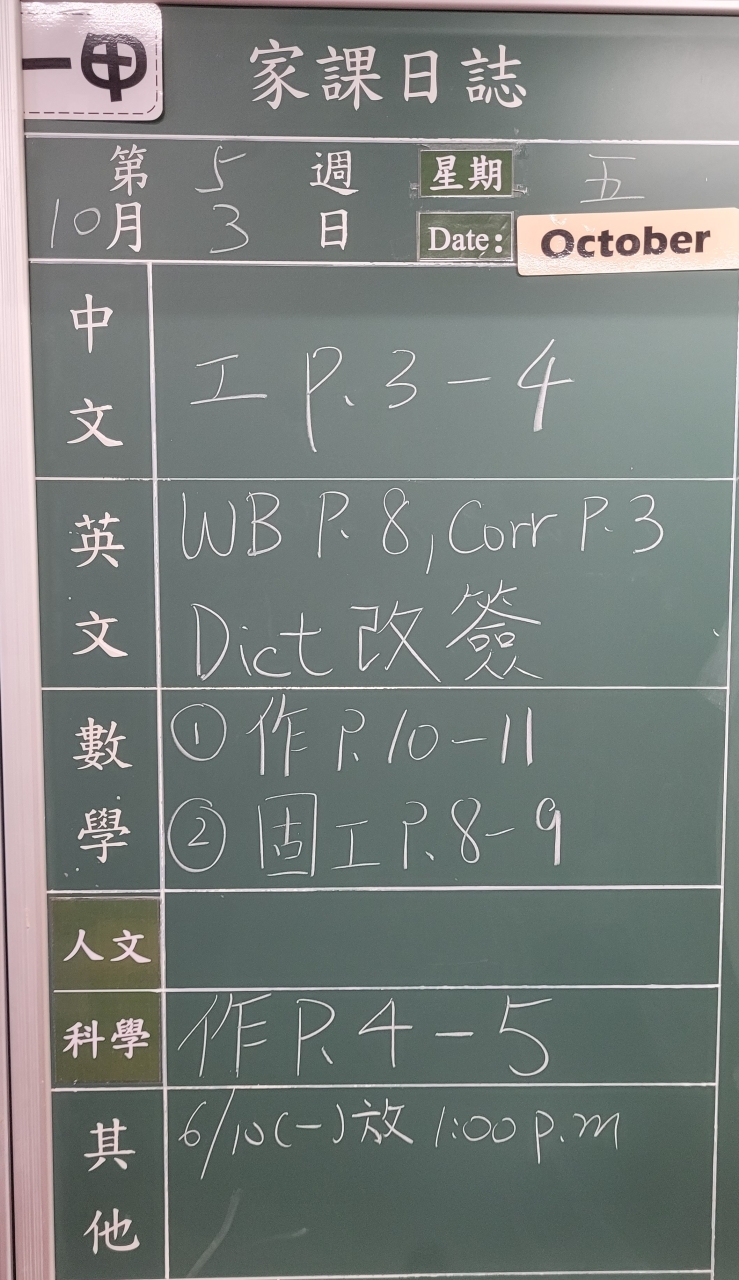 一甲
家課日誌
第 5 週 星期 五
10月 3 日 Date: October
中文 工 P. 3 - 4
英文 WB P. 8, Corr P. 3
Dict 改簽
數學 ① 作 P. 10 - 11
② 固工 P. 8 - 9
人文
科學 作 P. 4 - 5
其他 6/10(一)放 1:00 p.m